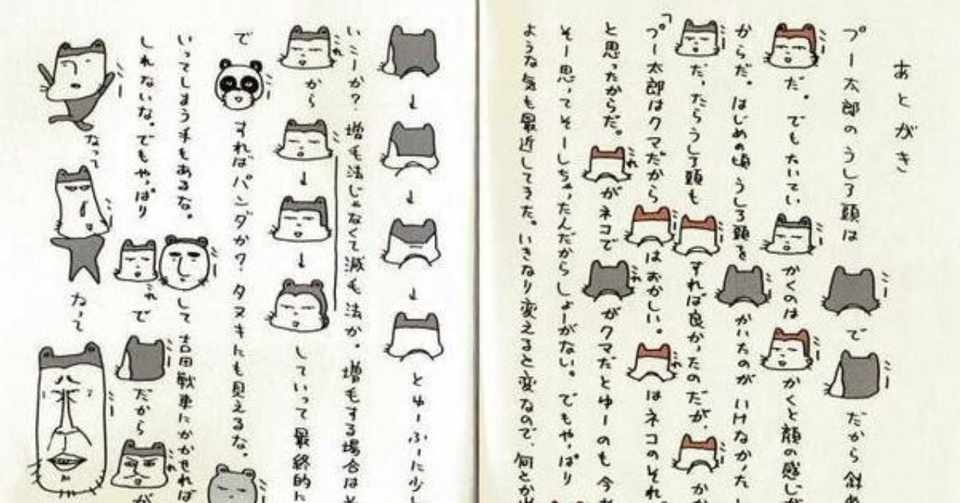 あとがき
プー太郎のうしろ頭は
で
だから斜
だ。でもたいてい
かくのは
かくと顔の感じが
からだ。はじめの頃うしろ頭を
かいたのがいけなかった
だ、たらうしろ頭も
それば良かったのだが、
「プー太郎はクマだから
はおかしい。
はネコのそれ
と思ったからだ。
がネコで
がクマだとゆーのも今
そー思ってそーしちゃったんだからしょーがない。でもやっぱり
ような気も最近してきた。いきなり変えると変なので、何とか
とゆーふーに少し
いこーか?増毛法じゃなくて減毛法か。増毛する場合は
から
していって最終的に
で
すればパンダか?タヌキにも見えるな。
いってしまう手もあるな。
して吉田戦車にかかせれば
しれないな。でもやっぱり
で
だから
が
なって
なって